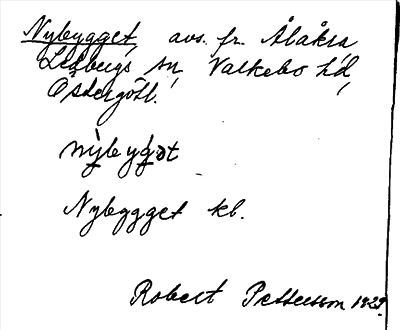 Nybygget avs. fr. Ålåkra
Ledbergs sn Valkebo hd,
Östergötl.
nybygǝt
Nybygget kl.
Robert Pettersson 1929